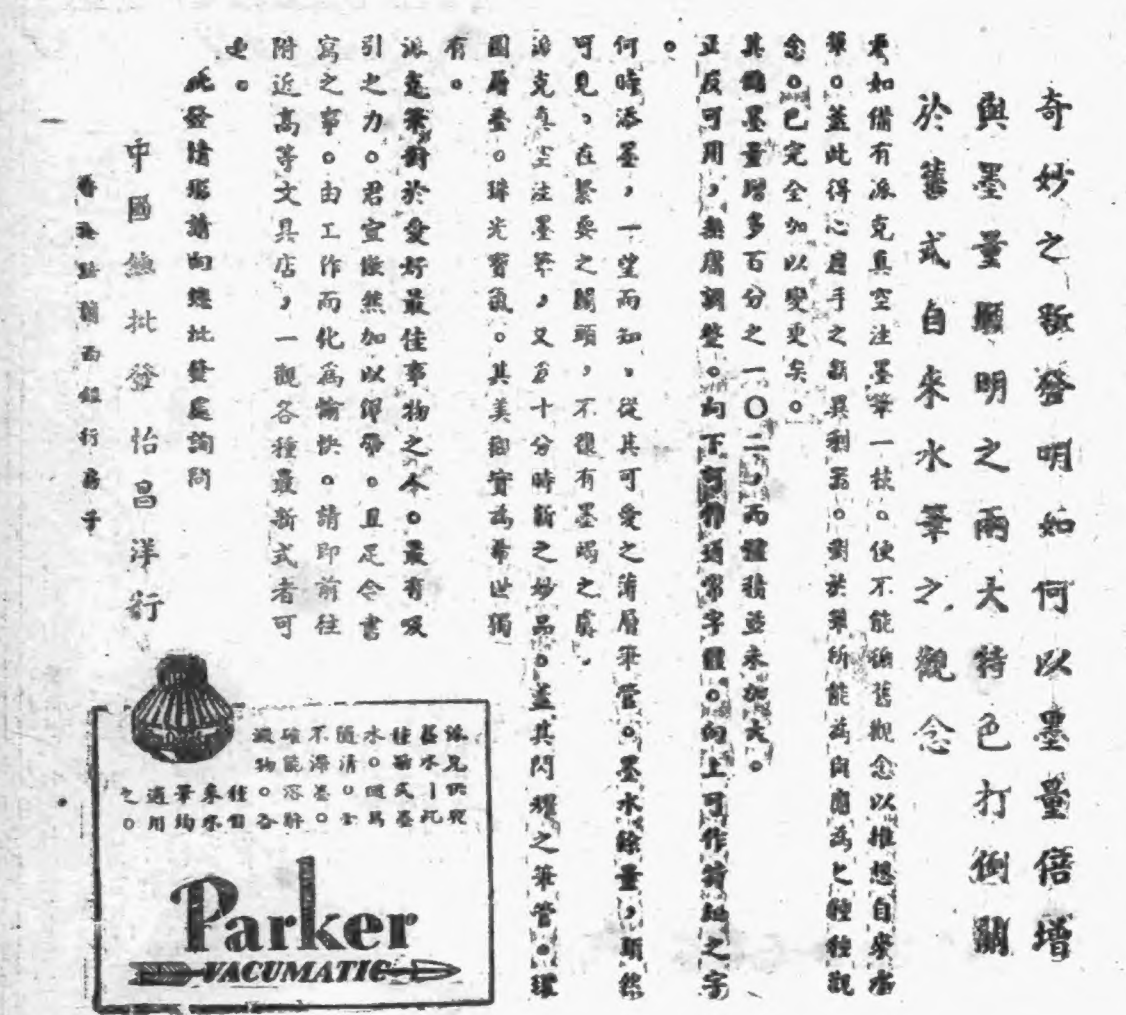 奇妙之新發明如何以墨量倍增
與墨量顯明之兩大特色打倒關
於舊式自來水筆之觀念
君如備有派克真空注墨筆一枝。便不能循舊觀念以推想自來水
筆。蓋此得心應手之新異利器。對於筆所能為與應為之種種觀
念。已完全加以變更矣。
其儲墨量增多百分之一〇二,而體積並未加大。
正反可用,無需調整。向下可作通常字體。向上可作蒼細之字
。
何時添墨,一望而知,從其可愛之薄層筆管。墨水餘量,顯然
可見,在緊要之關頭,不復有墨竭之虞。
派克真空注墨筆,又為十分時新之妙品。蓋其閃耀之筆管。環
圈層叠。珠光寶氣。其美麗實為希世獨
有。
派克筆對於愛好最佳事物之人。最有吸
引之力。君宜慨然加以佩帶。且足令書
寫之事。由工作而化為愉快。請即前往
附近高等文具店,一觀各種最新式者可
也。
批發請逕請向總批發處詢問
中國總批發 怡昌洋行
香港 行
派克
墨水—此
佳 式墨
水。
隨清。
不滯
確能溶解
澱物。各
佳
自來水
筆均
適用
之。
Parker
VACUMATIC